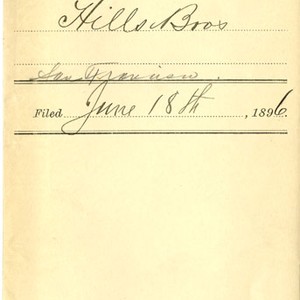 Hills Bros
San Francisco.
Filed June 18th, 1896